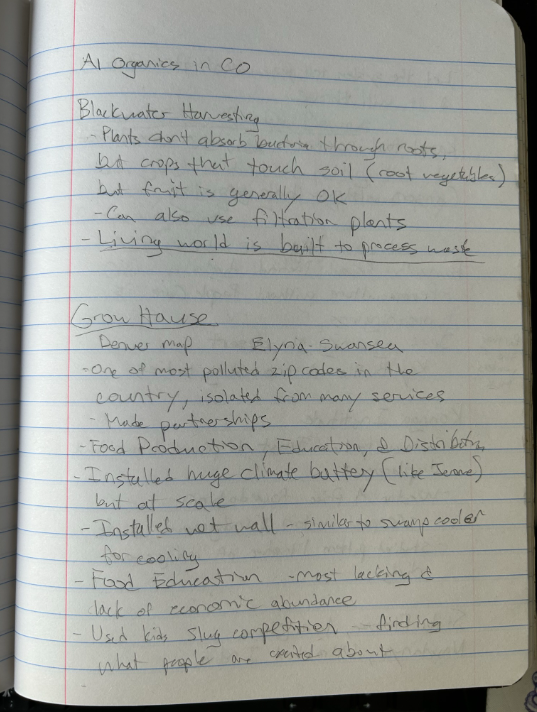 A1 Organics in CO
Blackwater Harvesting
- Plants don't absorb bacteria through roots,
but crops that touch soil (root vegetables)
but fruit is generally OK
- Can also use filtration plants
- Living world is built to process waste
Grow Hause
Denver map Elyria-Swansea
- One of most polluted zip codes in the
country, isolated from many services
- Made partnerships
- Food Production, Education, & Distribution
- Installed huge climate battery (like Jerome)
but at scale
- Installed wet wall - similar to swamp cooler
for cooling
- Food Education - most lacking &
lack of economic abundance
- Used kids slug competition - finding
what people are excited about
-